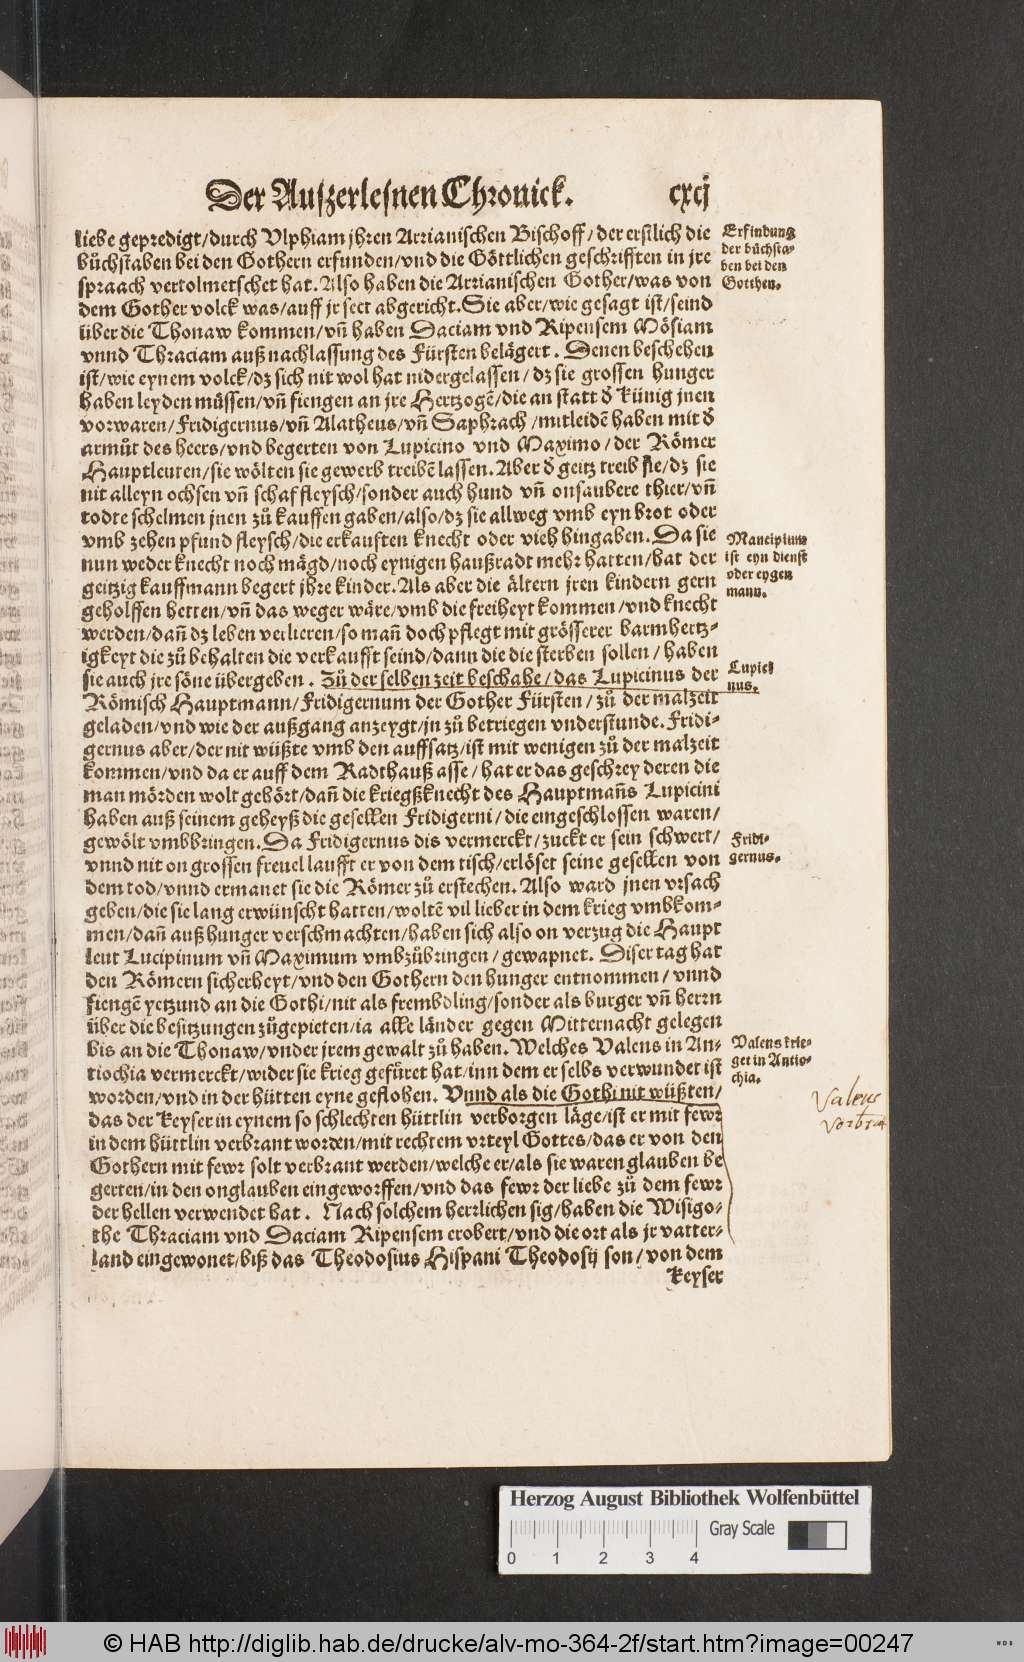 Der Auszerlesnen Chronick. cxcj
liebe gepredigt/durch Vlphiam jhren Arrianischen Bischoff/der erstlich die
bůchstaben bei den Gothern erfunden/vnd die Göttlichen geschrifften in jre
spraach vertolmetschet hat. Also haben die Arrianischen Gother/was von
dem Gother volck was/auff jr sect abgericht. Sie aber/wie gesagt ist/seind
über die Thonaw kommen/vñ haben Daciam vnd Ripensem Mösiam
vnnd Thraciam auß nachlassung des Fürsten belägert. Denen beschehen
ist/wie eynem volck/dz sich nit wol hat nidergelassen/dz sie grossen hunger
haben leyden müssen/vñ fiengen an jre Hertzogē/die an statt ð Künig jnen
vorwaren/Fridigernus/vñ Alatheus/vñ Saphrach/mitleidē haben mit ð
armůt des heers/vnd begerten von Lupicino vnd Maximo/der Römer
Hauptleuten/sie wölten sie gewerb treibē lassen. Aber ð geitz treib sie/dz sie
nit alleyn ochsen vñ schaf fleysch/sonder auch hund vñ onsaubere thier/vñ
todte schelmen jnen zů kauffen gaben/also/dz sie allweg vmb eyn brot oder
vmb zehen pfund fleysch/die erkauften knecht oder vieh hingaben. Da sie
nun weder knecht noch mägd/noch eynigen haußradt mehr hatten/hat der
geitzig kauffmann begert jhre kinder. Als aber die ältern jren kindern gern
geholffen hetten/vñ das weger wäre/vmb die freiheyt kommen/vnd knecht
werden/dañ dz leben verlieren/so mañ doch pflegt mit grösserer barmhertz-
igkeyt die zů behalten die verkaufft seind/dann die die sterben sollen/haben
sie auch jre söne übergeben. Zů der selben zeit beschahe/das Lupicinus der
Römisch Hauptmann/Fridigernum der Gother Fürsten/zů der malzeit
geladen/vnd wie der außgang anzeygt/jn zů betriegen vnderstunde. Fridi-
gernus aber/der nit wüßte vmb den auffsatz/ist mit wenigen zů der malzeit
kommen/vnd da er auff dem Radthauß asse/hat er das geschrey deren die
man mörden wolt gehört/dañ die kriegßknecht des Hauptmañs Lupicini
haben auß seinem geheyß die gesellen Fridigerni/die eingeschlossen waren/
gewölt vmbbringen. Da Fridigernus dis vermerckt/zuckt er sein schwert/
vnnd nit on grossen freuel laufft er von dem tisch/erlöset seine gesellen von
dem tod/vnnd ermanet sie die Römer zů erstechen. Also ward jnen vrsach
geben/die sie lang erwünscht hatten/woltē vil lieber in dem krieg vmbkom-
men/dañ auß hunger verschmachten/haben sich also on verzug die Haupt
leut Lucipinum vñ Maximum vmbzůbringen/gewapnet. Diser tag hat
den Römern sicherheyt/vnd den Gothern den hunger entnommen/vnnd
fiengē yetzund an die Gothi/nit als frembdling/sonder als burger vñ herrn
über die besitzungen zůgepieten/ia alle länder gegen Mitternacht gelegen
bis an die Thonaw/vnder jrem gewalt zů haben. Welches Valens in An-
tiochia vermerckt/wider sie krieg gefüret hat/inn dem er selbs verwundet ist
worden/vnd in der hütten eyne geflohen. Vnnd als die Gothi nit wüßten/
das der Keyser in eynem so schlechten hüttlin verborgen läge/ist er mit fewr
in dem hüttlin verbrant worden/mit rechtem vrteyl Gottes/das er von den
Gothern mit fewr solt verbrant werden/welche er/als sie waren glauben be
gerten/in den onglauben eingeworffen/vnd das fewr der liebe zů dem fewr
der hellen verwendet hat. Nach solchem herrlichen sig/haben die Wisigo-
the Thraciam vnd Daciam Ripensem erobert/vnd die ort als jr vatter-
land eingewonet/biß das Theodosius Hispani Theodosij son/von dem
Keyser
Erfindung
der bůchsta-
ben bei den
Gotthen.
Mancipium
ist eyn dienst
oder eygen
mann.
Lupici
nus.
Fridi-
gernus.
Valens krie-
get in Antio-
chia.
Valens
Herzog August Bibliothek Wolfenbüttel
Gray Scale
0 1 2 3 4
© HAB http://diglib.hab.de/drucke/alv-mo-364-2f/start.htm?image=00247